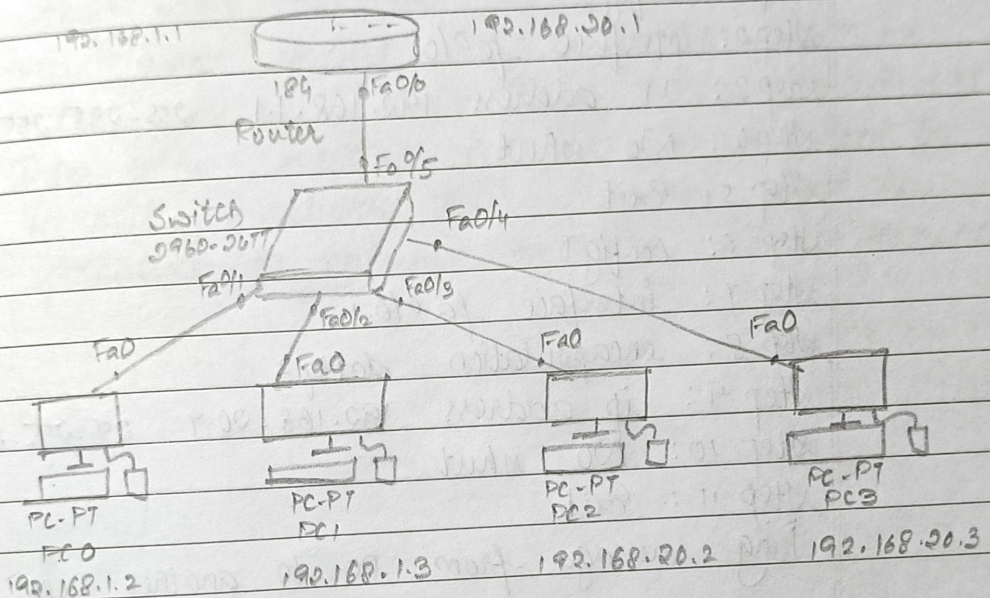 192.168.1.1
192.168.20.1
184
Fa0/0
Router
Fa0/5
Switch
2960-24TT
Fa0/4
Fa0/1
Fa0/2
Fa0/3
Fa0
Fa0
Fa0
Fa0
PC-PT
PC0
192.168.1.2
PC-PT
PC1
192.168.1.3
PC-PT
PC2
192.168.20.2
PC-PT
PC3
192.168.20.3